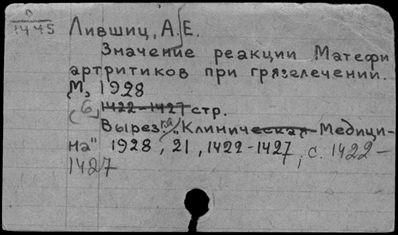 Л
1445
Лившиц, А. Е.
Значение реакции Матефи
артритиков при грязелечении.
М, 1928
(6) 1422-1427 стр.
Вырез. из „Клиническая Медици-
на" 1928, 21, 1422-1427, с. 1422-
1427